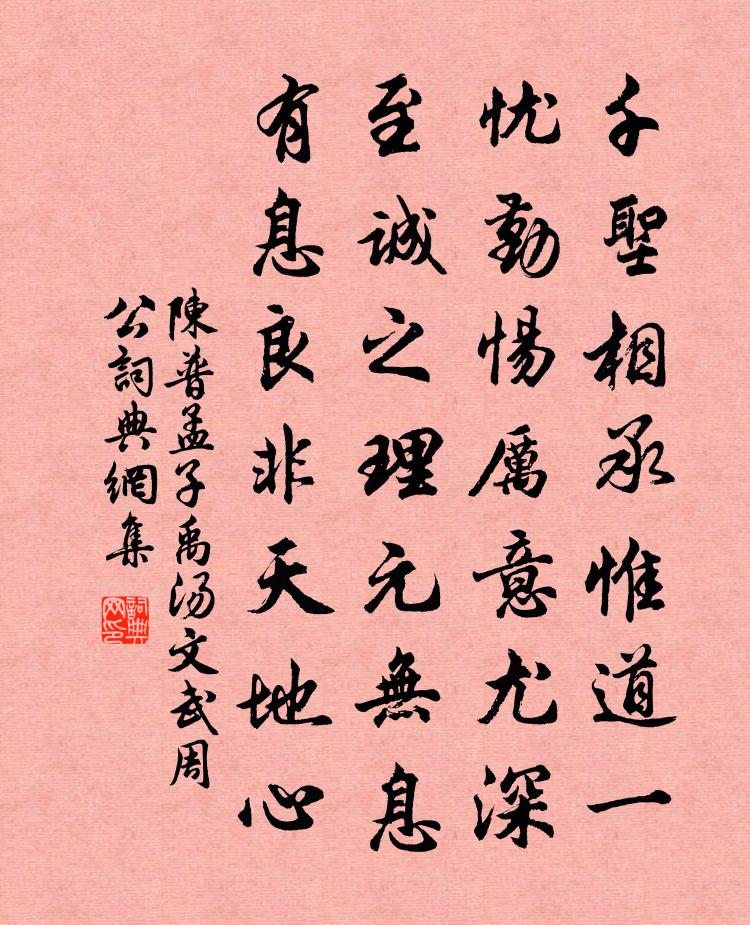 千聖相承惟道一
忧勤惕厲意尤深
至誠之理元無息
有息良非天地心
陳普孟子禹汤文武周
公詞典網集
詞典网印